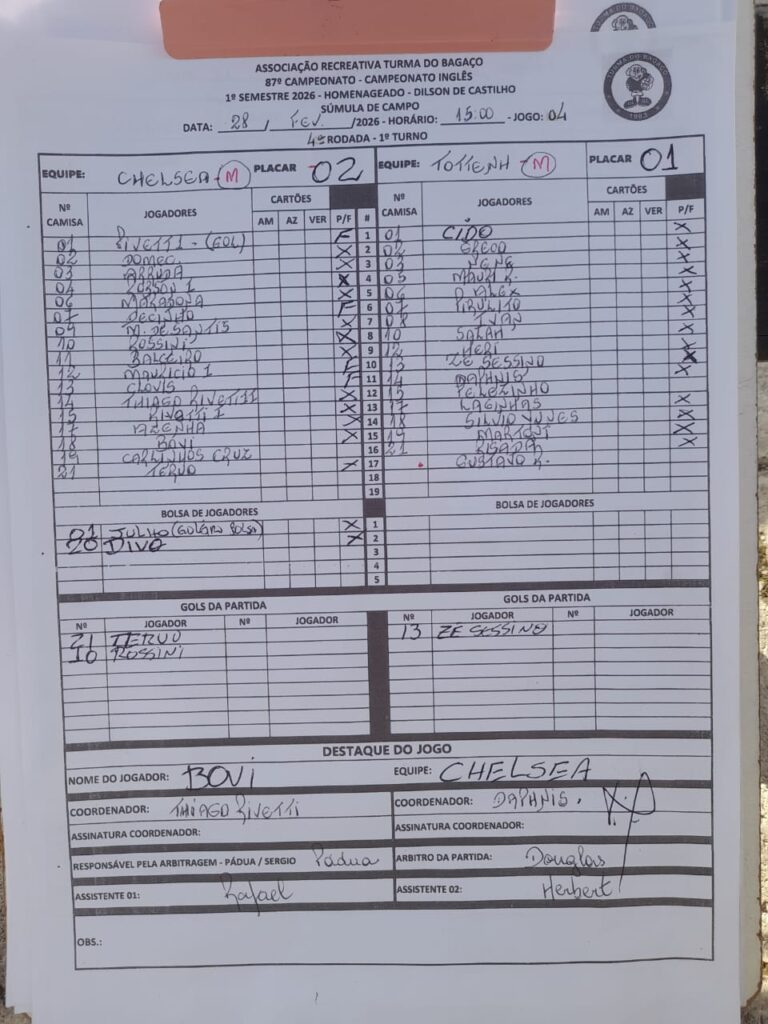 ASSOCIAÇÃO RECREATIVA TURMA DO BAGAÇO
87º CAMPEONATO - CAMPEONATO INGLÊS
1º SEMESTRE 2026 - HOMENAGEADO - DILSON DE CASTILHO
SÚMULA DE CAMPO
DATA: 28 / FEV. /2026 - HORÁRIO: 15:00 - JOGO: 04
4ª RODADA - 1º TURNO
TURMA DO BAGAÇO
1983
EQUIPE: CHELSEA - M PLACAR 02 EQUIPE: TOTTENH - M PLACAR 01
Nº CAMISA JOGADORES CARTÕES AM AZ VER P/F # Nº CAMISA JOGADORES CARTÕES AM AZ VER P/F
01 RIVETTI - (GOL) F 1 01 CIDO X
02 DOMEC. X 2 02 X
03 ARRUDA X 3 03 NENÊ X
04 X 4 05 MAURI R. X
06 MARADONA X 5 06 D ALEX X
07 DECINHO F 6 07 PIRULITO X
09 M. DE SANTIS X 7 08 IVAN X
10 ROSSINI X 8 10 SALAH X
11 BALCEIRO X 9 12 NERI X
12 MAURICIO I F 10 13 ZÉ SESSINO X
13 CLOVIS F 11 14 DAPHNIS X
14 THIAGO RIVETTI X 12 15 PELEZINHO
15 RIVETTI I X 13 17 LAGINHAS X
17 AZENHA X 14 18 SILVIO NUNES X
18 BOVI X 15 19 MARTONI X
19 CARLINHOS CRUZ 16 21 RISADA X
21 TERUO X 17 GUSTAVO R.
18
19
BOLSA DE JOGADORES BOLSA DE JOGADORES
01 JULHO (GOLEIRO BOLSA) X 1
20 DIVO X 2
3
4
5
GOLS DA PARTIDA GOLS DA PARTIDA
Nº JOGADOR Nº JOGADOR Nº JOGADOR Nº JOGADOR
21 TERUO 13 ZÉ SESSINO
10 ROSSINI
DESTAQUE DO JOGO
NOME DO JOGADOR: BOVI EQUIPE: CHELSEA
COORDENADOR: THIAGO RIVETTI COORDENADOR: DAPHNIS.
ASSINATURA COORDENADOR: ASSINATURA COORDENADOR:
RESPONSÁVEL PELA ARBITRAGEM - PÁDUA / SERGIO Pádua ARBITRO DA PARTIDA: Douglas
ASSISTENTE 01: Rafael ASSISTENTE 02: Herbert
OBS.: